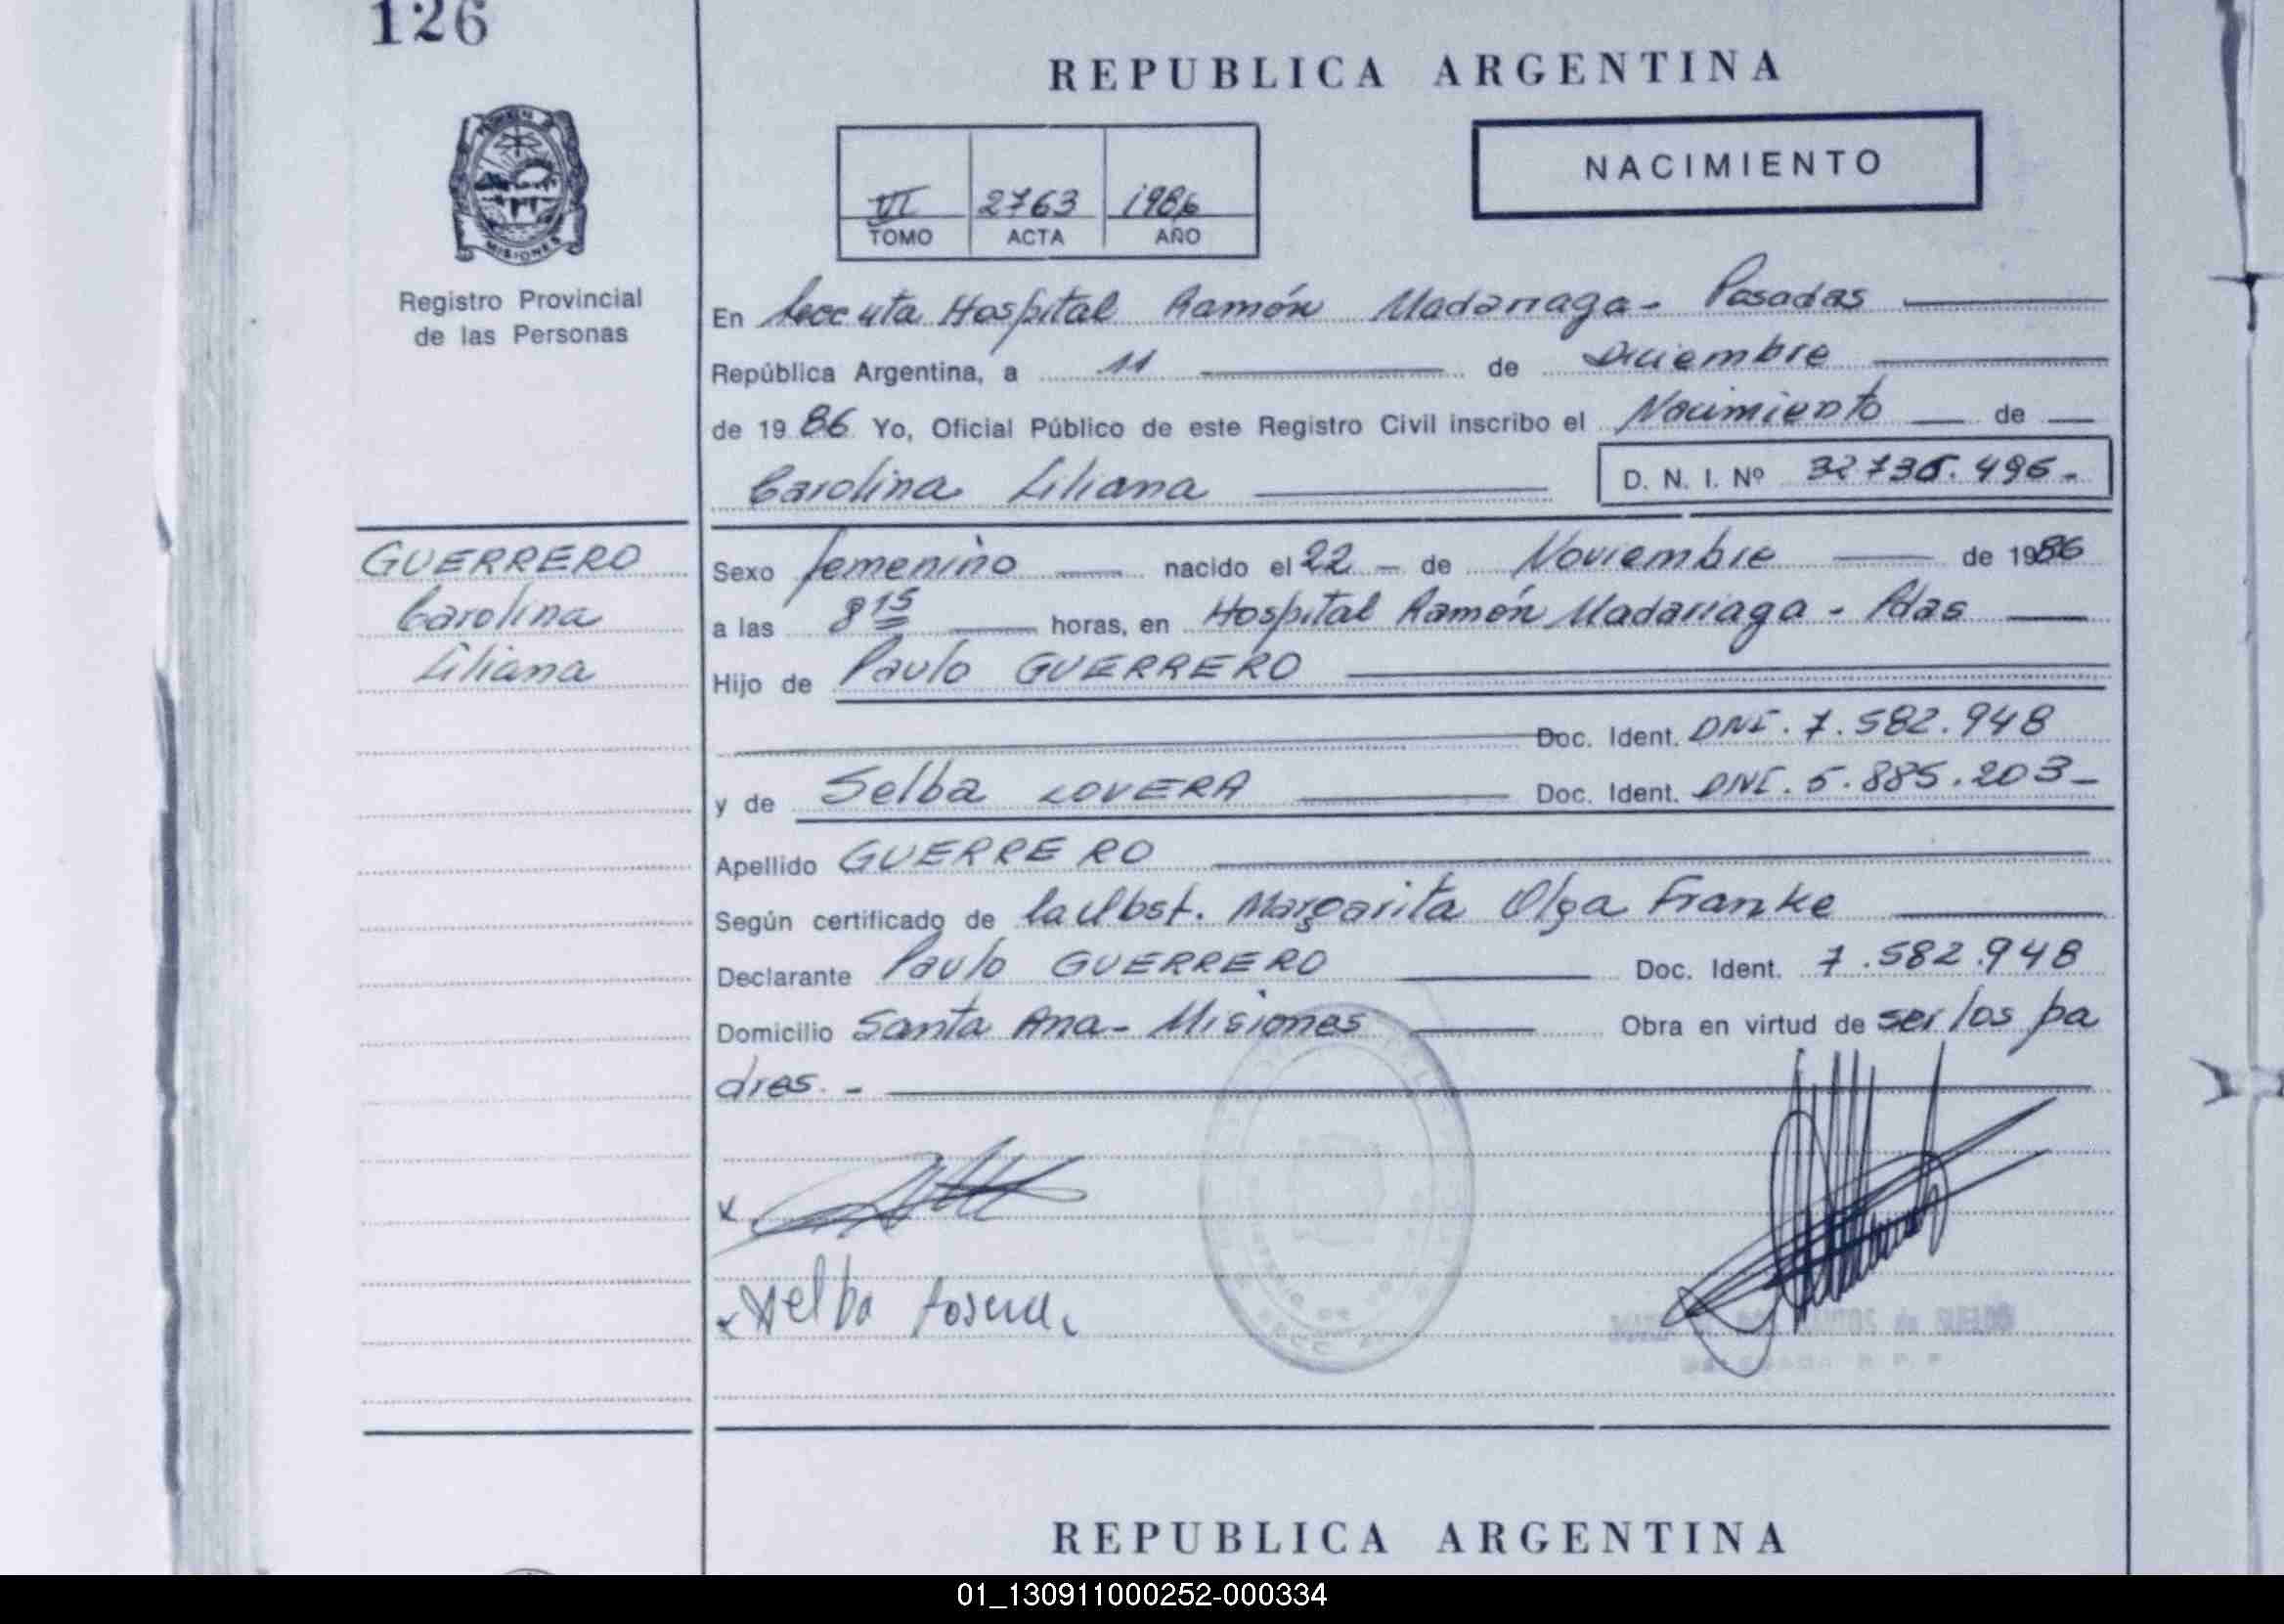 126
REPUBLICA ARGENTINA
MISIONES
Registro Provincial
de las Personas
VI 2763 1986
TOMO ACTA AÑO
NACIMIENTO
En Hospital Ramón Madariaga - Posadas
República Argentina, a 11 de Diciembre
de 1986 Yo, Oficial Público de este Registro Civil inscribo el Nacimiento de
Carolina Liliana D. N. I. Nº 32.736.496.-
GUERRERO
Carolina
Liliana
Sexo femenino nacido el 22 - de Noviembre de 1986
a las 8 15 horas, en Hospital Ramón Madariaga - Pdas
Hijo de Paulo GUERRERO
Doc. Ident. DNI. 7.582.948
y de Selba LOVERA Doc. Ident. DNI. 5.885.203-
Apellido GUERRERO
Según certificado de la Obst. Margarita Olga Franke
Declarante Paulo GUERRERO Doc. Ident. 7.582.948
Domicilio Santa Ana - Misiones Obra en virtud de ser los pa
dres. -
x
x Selba
REPUBLICA ARGENTINA
01_130911000252-000334